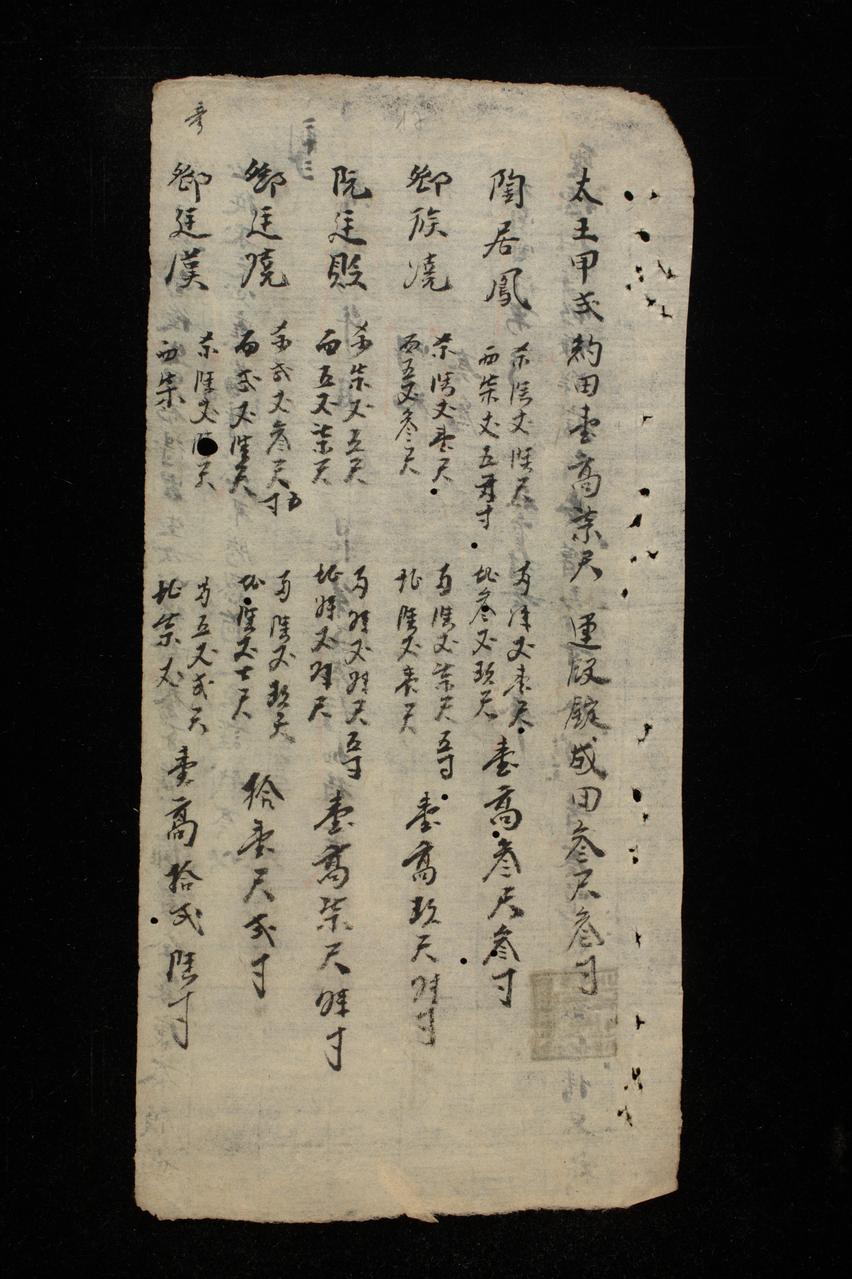 太王甲弍約田壱高柒尺 連段錠成田叁尺叁寸
陶居鳳
东陸丈陸尺
西柒丈五寸
南肆丈壱尺
北叁丈玖尺
壱高叁尺叁寸
鄉族澆
东陸丈壱尺
西五丈叁尺
南陸丈柒尺五寸
北陸丈壱尺
壱高玖尺肆寸
一十三
阮廷敗
东柒丈五尺
西五丈柒尺
南肆丈肆尺五寸
北肆丈肆尺
壱高柒尺肆寸
鄉廷曉
东弍丈叁尺五寸
西弍丈陸尺
南陸丈玖尺
北陸丈七尺
拾壱尺弍寸
鄉廷漢
东陸丈陸尺
西柒
南五丈弍尺
北柒丈
壱高拾弍陸寸